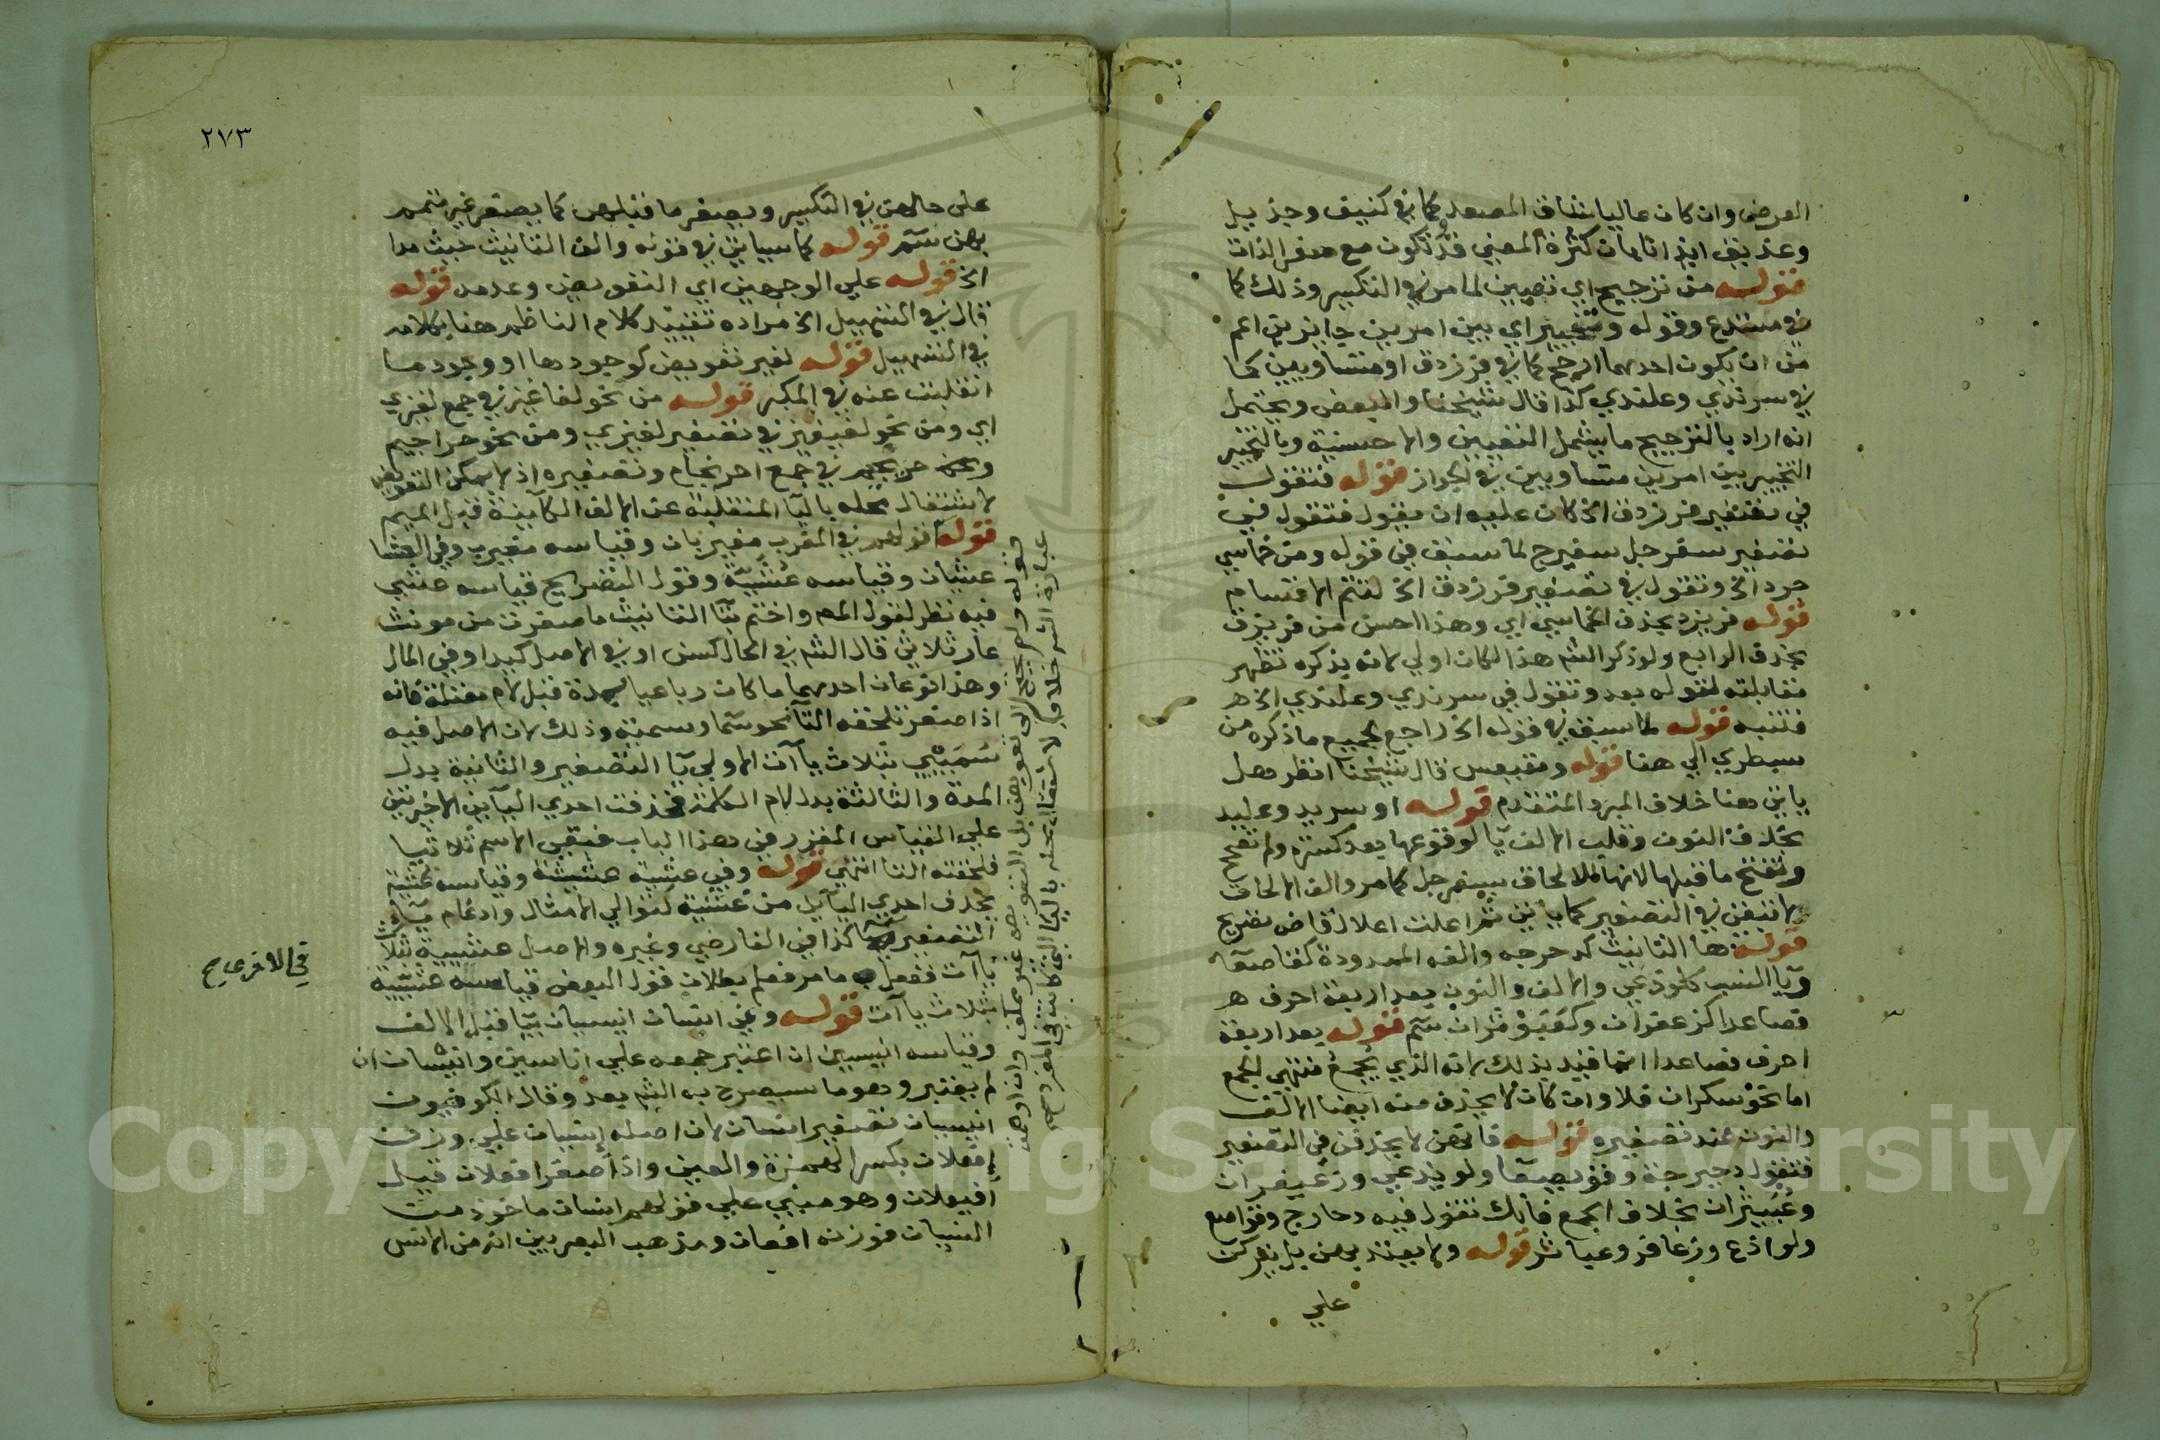 العرض وان كان عاليا شاق المصعد كما في كنيف وجذيل
وعذيق ايذانا بان كثرة المعني قد تكون مع صغر الذات
قوله من ترجيح اي تعيين لما مر في التكبير وذلك كما
في مستدع وقوله وتخيير اي بين امرين جايزين اعم
من ان يكون احدهما ارجح كما في فرزدق او متساويين كما
في سرندي وعلندي كذا قال شيخنا والبعض ويحتمل
انه اراد بالترجيح ما يشمل التعيين والاحسنية وبالتخيير
التخيير بين امرين متساويين في الجواز قوله فتقول
في تصغير فرزدق الخ كان عليه ان يقول فتقول في
تصغير سفرجل سفيرج لما سبق في قوله ومن خماسي
جرد الخ وتقول في تصغير فرزدق الخ لتتم الاقسام
قوله فريزد بحذف الخماسي اي وهذا احسن من فريزق
بحذف الرابع ولو ذكر الشم هذا لكان اولي لانه بذكره تظهر
مقابلته لقوله بعد وتقول في سرندي وعلندي الخ هـ
فتنبه قوله لما سبق في قوله الخ راجع لجميع ما ذكره من
سبطري الي هنا قوله ومقيعس قال شيخنا انظر هل
ياتي هنا خلاف المبرد المتقدم قوله او سريد وعليد
بحذف النون وقلب الالف يآ لوقوعها بعد كسرة ولم تصحح
ويفتح ما قبلها لانها للالحاق بسفرجل كما مر والف الالحاق
لا تبقي في التصغير كما ياتي ثم اعلت اعلال قاض تصريح
قوله هآ التانيث كدحرجه والفه الممدودة كقاصعآ
ويآ النسب كلوذعي والالف والنون بعد اربعة احرف هـ
فصاعدا كزعفران وكعبوثران سم قوله بعد اربعة
احرف فصاعدا انما قيد بذلك لانه الذي يجمع منتهي الجمع
اما نحو سكران فلا وان كان لا يحذف منه ايضا الالف
والنون عند تصغيره قوله فانهن لا يحذفن في التصغير
فتقول دحيرجة وقويصعآ ولويذعي وزعيفران
وعبيثران بخلاف الجمع فانك تقول فيه دحارج وقواصع
ولواذع وزعافر وعباثر قوله ولا يعتد بهن بل يتركن
علي
٢٧٣
علي حالهن في التكبير ويصغر ما قبلهن كما يصغر غير متمم
بهن سم قوله كما سياتي في قوله والف التانيث حيث مدا
الخ قوله علي الوجهين اي التعويض وعدمه قوله
قال في التسهيل الخ مراده تقييد كلام الناظم هنا بكلامه
في التسهيل قوله لغير تعويض كوجودها او وجود ما
انقلبت عنه في المكبر قوله من نحو لغاغيز في جمع لغيزي
اي ومن نحو لغيغيز في تصغير لغيزي ومن نحو حراجيم
وحريجيم في جمع احرنجام وتصغيره اذ لا يمكن التعويض
لاشتغال محله باليآ المنقلبة عن الالف الكآينة قبل الميم
قوله قولهم في المغرب مغيربان وقياسه مغيرب وفي العشا
عشيان وقياسه عشية وقول التصريح قياسه عشي
فيه نظر لقول المص واختم بتا التانيث ما صغرت من مونث
عار ثلاثي قال الشم في الحال كسن او في الاصل كيد او في المال
وهذا نوعان احدهما ما كان رباعيا بمدة قبل لام معتلة فانه
اذا صغر تلحقه التآ نحو سمآ وسمية وذلك لان الاصل فيه
سميي بثلاث يآآت الاولي يآ التصغير والثانية بدل
المدة والثالثة بدل لام الكلمة فحذفت احدي اليآين الاخيرتين
علي القياس المقرر في هذا الباب فبقي الاسم ثلاثيا
فلحقته التا انتهي قوله وفي عشية عشيشة وقياسه عشية
بحذف احدي اليآين من عشية لتوالي الامثال وادغام يآ
التصغير في الاخري صح كذا في الفارضي وغيره والاصل عشييية بثلاث
يآآت ففعل به ما مر فعلم بطلان قول البعض قياسه عشيية
بثلاث يآآت قوله وفي انسان انيسيان بيآ قبل الالف
وقياسه انيسين ان اعتبر جمعه علي اناسين وانيسان ان
لم يعتبر وهو ما سيصرح به الشم بعد وقال الكوفيون
انيسيان تصغير انسان لان اصله إنسيان علي وزن
إفعلان بكسر الهمزة والعين واذا صغر افعلان قيل
أفيعلان وهو مبني علي قولهم انسان ماخوذ من
النسيان فوزنه افعان ومذهب البصريين انه من الانس
قوله ولم يحتج الي تعويض بل التعويض غير ممكن وان اوهمت
عبارة الشم خلافه لاشتغال محله باليآ التي كانت في المفرد سم
في الاخري صح